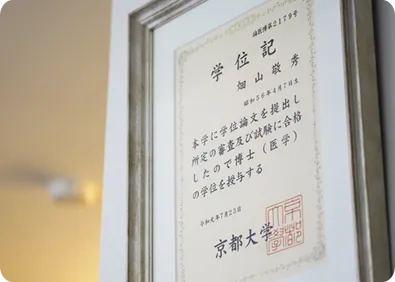 論医博第2179号
学位記
畑山敬秀
昭和56年4月7日生
本学に学位論文を提出し
所定の審査及び試験に合格
したので博士（医学）
の学位を授与する
令和元年7月23日
京都大学
京都大學